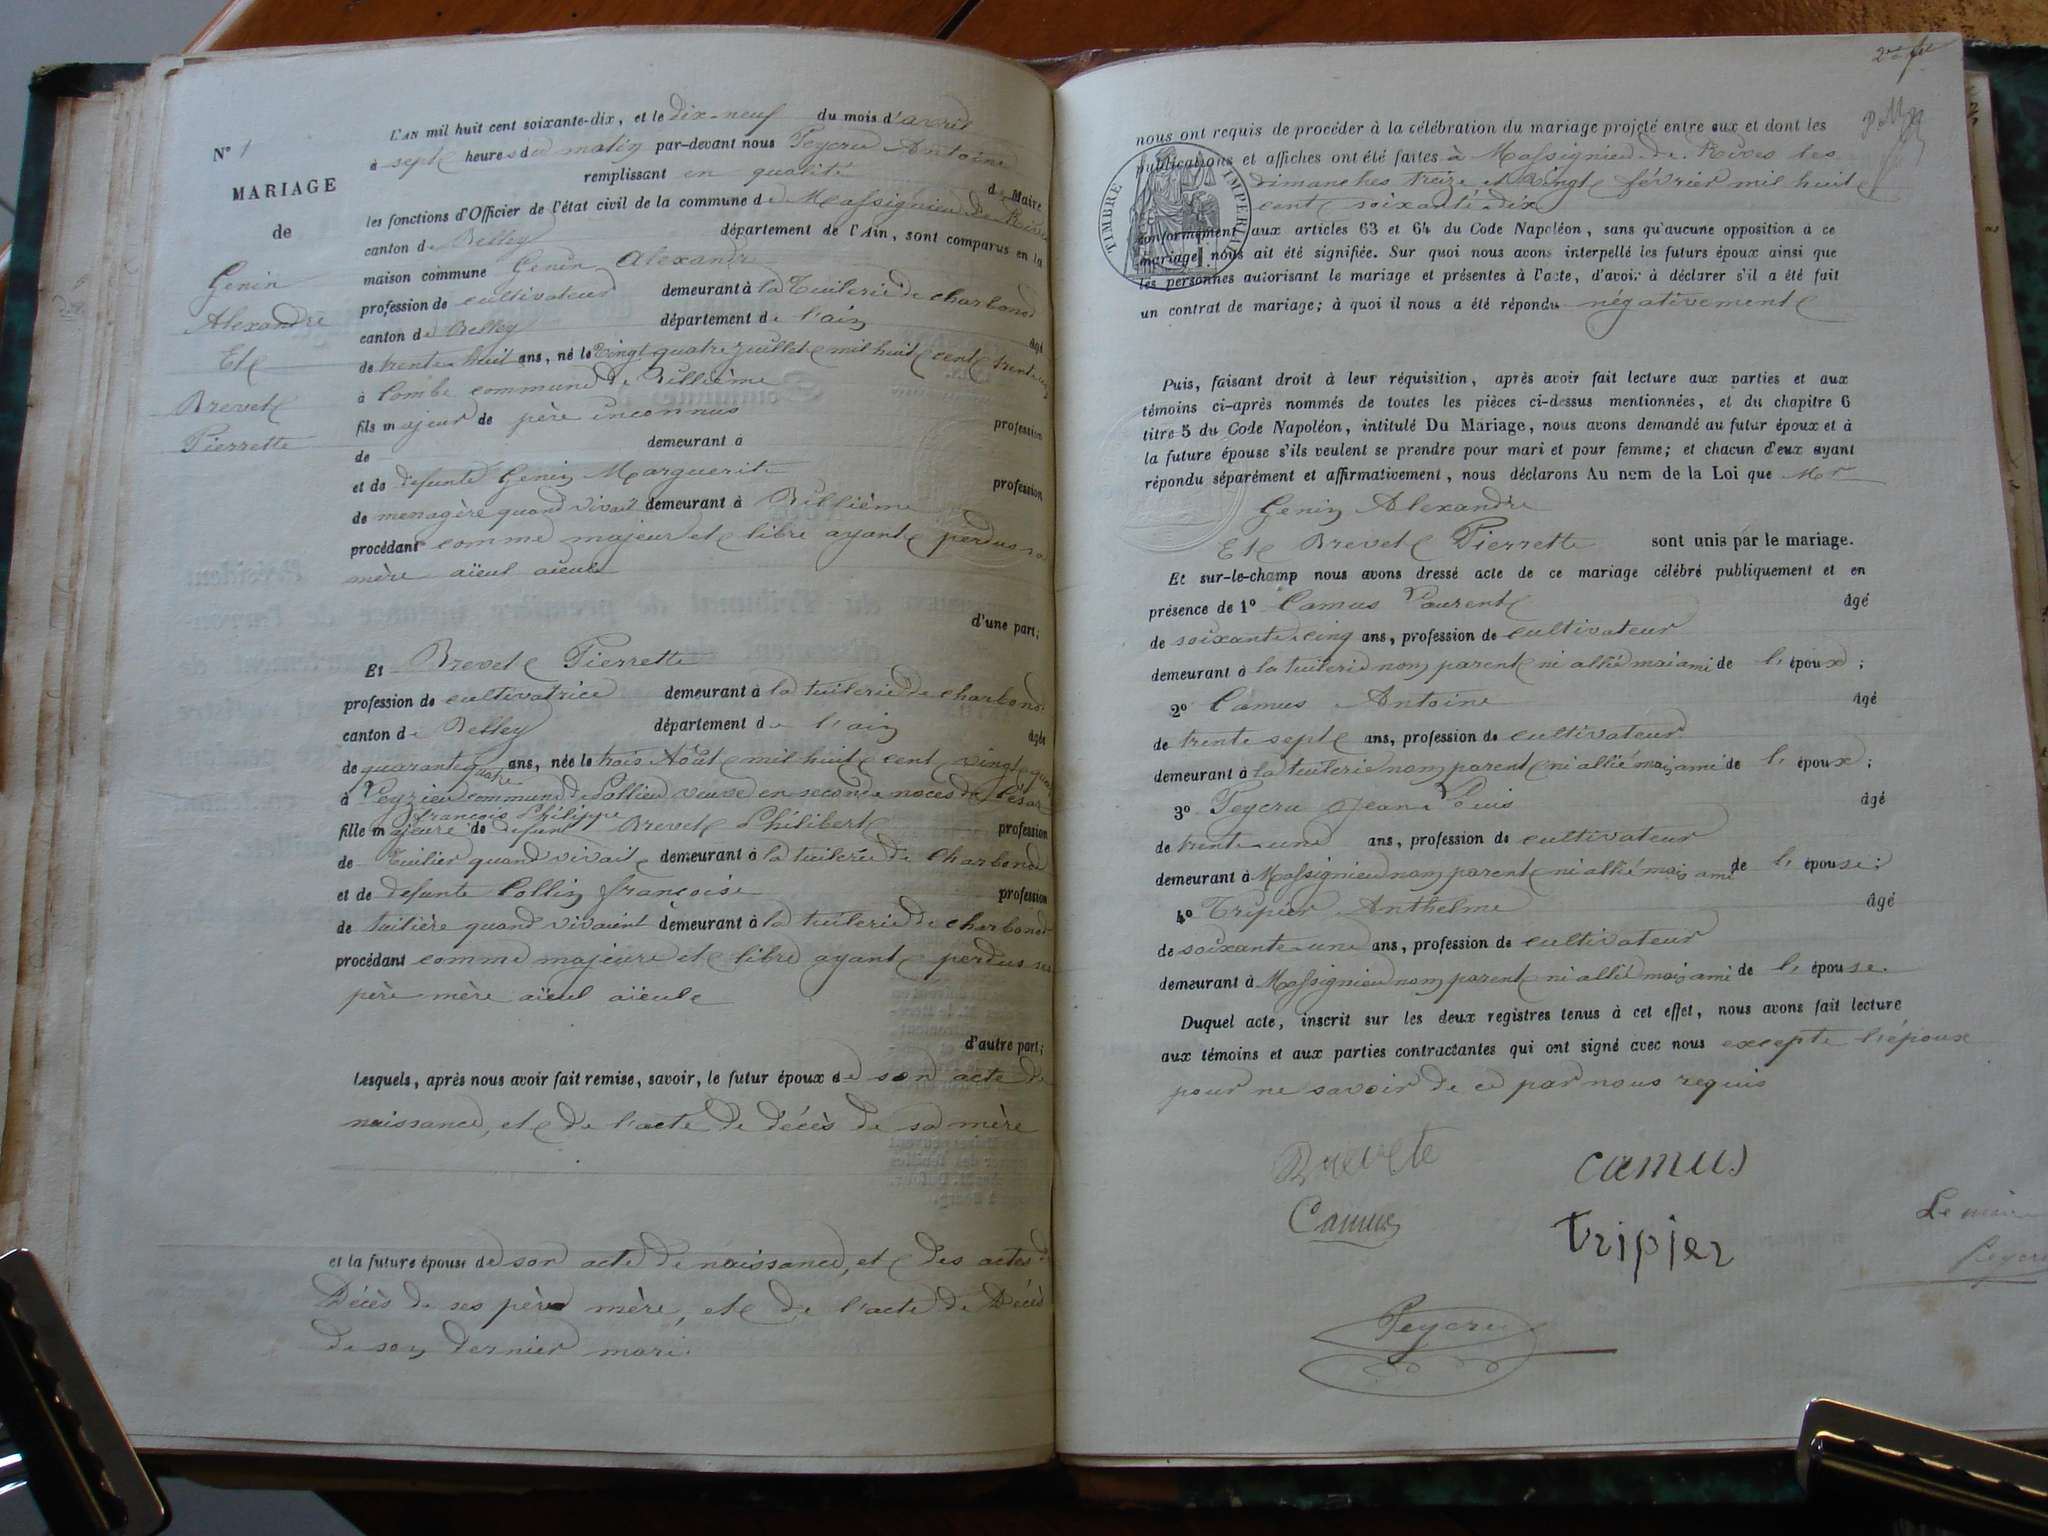 N° 1
MARIAGE
de
Genin
Alexandre
Et
Brevet
Pierrette
L'AN mil huit cent soixante-dix, et le dix-neuf du mois d'avril
à sept heures du matin par-devant nous Peycru Antoine
remplissant en qualité de Maire
les fonctions d'Officier de l'état civil de la commune de Massignieu de Rives
canton de Belley département de l'Ain, sont comparus en la
maison commune Genin Alexandre
profession de cultivateur demeurant à la Tuilerie de charbonod
canton de Belley département de l'ain âgé
de trente-huit ans, né le Vingt quatre juillet mil huit cent trente un
à Lombe commune de Billième
fils majeur de père inconnus profession
de demeurant à
et de defunte Genin Marguerite profession
de menagère quand vivait demeurant à Billième
procédant comme majeur et libre ayant perdus sa
mère aïeul aieule
d'une part;
Et Brevet Pierrette
profession de cultivatrice demeurant à la tuilerie de charbonod
canton de Belley département de l'ain âgée
de quarante quatre ans, née le trois Août mil huit cent vingt
à Peyzieu commune de veuve en seconde noces de César
françois Philippe
fille majeure de defunt Brevet Philibert profession
de Tuilier quand vivait demeurant à la tuilerie de Charbonod
et de defunte Collin françoise profession
de tuilière quand vivaient demeurant à la tuilerie de charbonod
procédant comme majeure et libre ayant perdus ses
père mère aïeul aïeule
d'autre part;
Lesquels, après nous avoir fait remise, savoir, le futur époux de son acte de
naissance, et de l'acte de décès de sa mère
et la future épouse de son acte de naissance, et des actes de
Décès de ses père mère, et de l'acte de Décès
de son dernier mari.
nous ont requis de procéder à la célébration du mariage projeté entre eux et dont les
publications et affiches ont été faites à Massignieu de Rives les
dimanches treize et vingt février mil huit
cent soixante-dix
TIMBRE IMPERIAL
conformément aux articles 63 et 64 du Code Napoléon, sans qu'aucune opposition à ce
mariage nous ait été signifiée. Sur quoi nous avons interpellé les futurs époux ainsi que
les personnes autorisant le mariage et présentes à l'acte, d'avoir à déclarer s'il a été fait
un contrat de mariage; à quoi il nous a été répondu négativement
Puis, faisant droit à leur réquisition, après avoir fait lecture aux parties et aux
témoins ci-après nommés de toutes les pièces ci-dessus mentionnées, et du chapitre 6
titre 5 du Code Napoléon, intitulé Du Mariage, nous avons demandé au futur époux et à
la future épouse s'ils veulent se prendre pour mari et pour femme; et chacun d'eux ayant
répondu séparément et affirmativement, nous déclarons Au nom de la Loi que Mr
Genin Alexandre
Et Brevet Pierrette sont unis par le mariage.
Et sur-le-champ nous avons dressé acte de ce mariage célébré publiquement et en
présence de 1° Camus Laurent âgé
de soixante-cinq ans, profession de cultivateur
demeurant à la tuilerie non parent ni allié mai ami de l'époux;
2° Camus Antoine âgé
de trente sept ans, profession de cultivateur
demeurant à la tuilerie non parent ni allié mais ami de l'époux;
3° Peycru Jean Louis âgé
de trente-une ans, profession de cultivateur
demeurant à Massignieu non parent ni allié mais ami de l'épouse;
4° Tripier Anthelme âgé
de soixante-une ans, profession de cultivateur
demeurant à Massignieu non parent ni allié mais ami de l'épouse.
Duquel acte, inscrit sur les deux registres tenus à cet effet, nous avons fait lecture
aux témoins et aux parties contractantes qui ont signé avec nous excepte l'époux
pour ne savoir de ce par nous requis
Camus
Camus
Tripier
Le maire
Peycru
Peycru